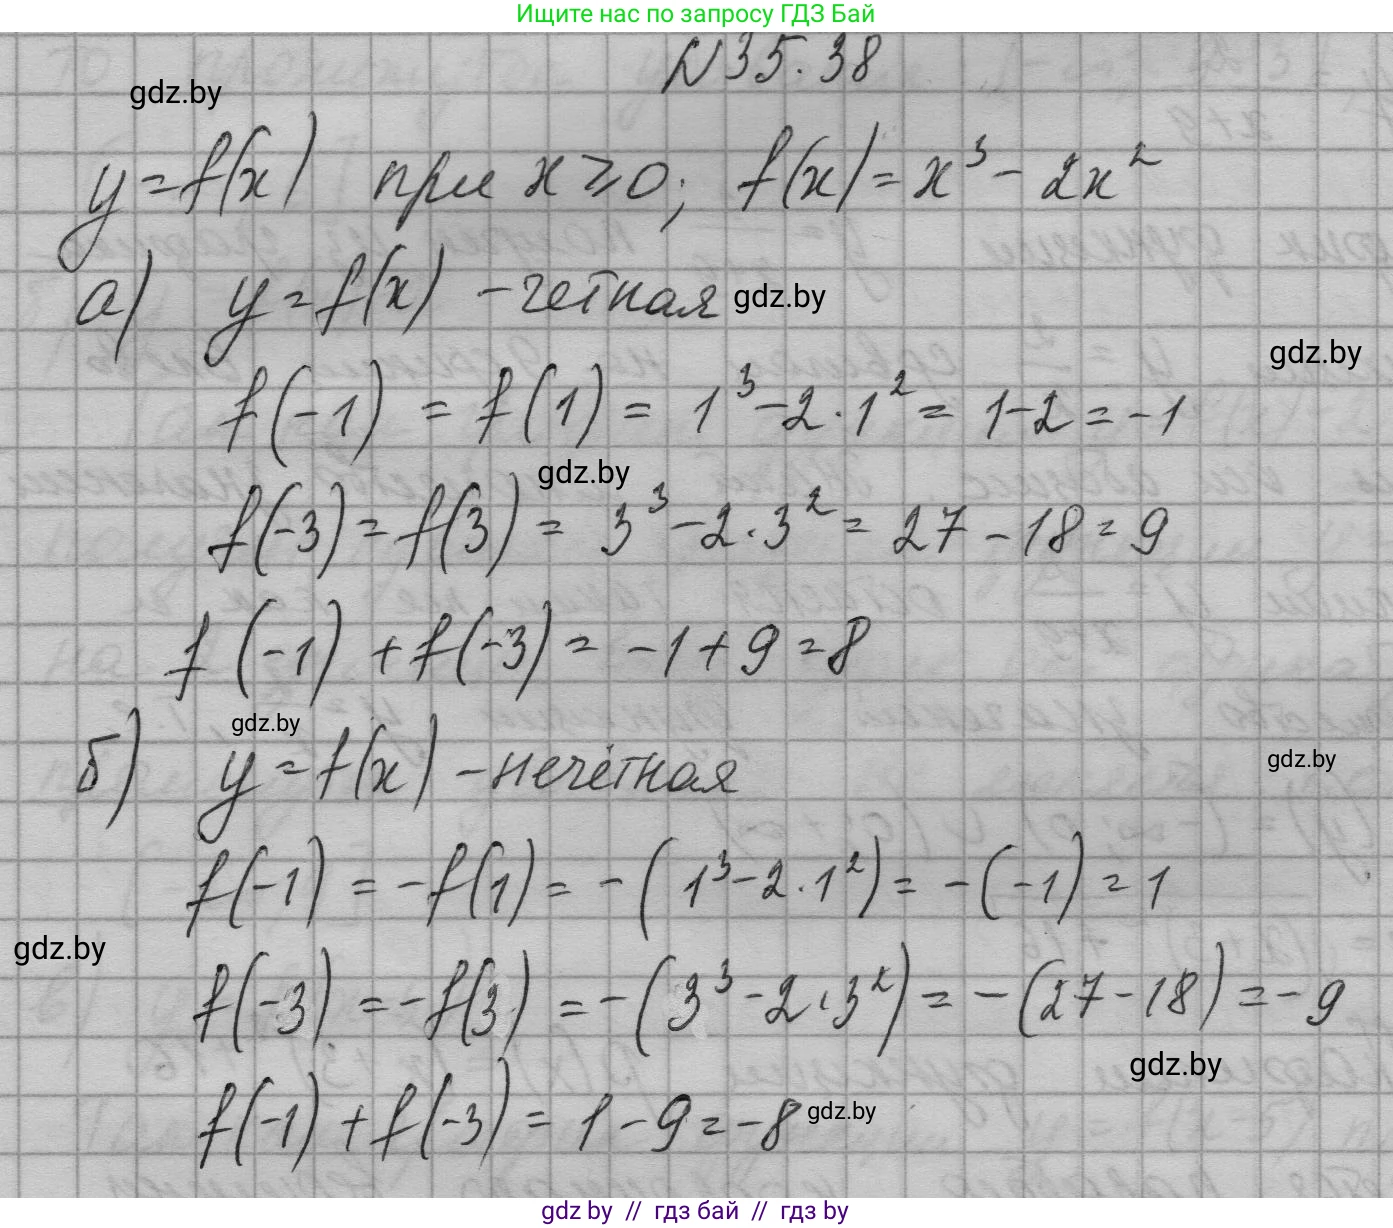 Ищите нас по запросу ГДЗ Бай
N 35.38
gdz.by
y = f(x) при x ⩾ 0; f(x) = x³ - 2x²
а) y = f(x) - чётная gdz.by
gdz.by
f(-1) = f(1) = 1³ - 2·1² = 1 - 2 = -1
gdz.by
f(-3) = f(3) = 3³ - 2·3² = 27 - 18 = 9
f(-1) + f(-3) = -1 + 9 = 8
gdz.by
б) y = f(x) - нечётная
gdz.by
f(-1) = -f(1) = -(1³ - 2·1²) = -(-1) = 1
gdz.by
f(-3) = -f(3) = -(3³ - 2·3²) = -(27 - 18) = -9
gdz.by
f(-1) + f(-3) = 1 - 9 = -8 gdz.by
gdz by // гдз бай // гдз by